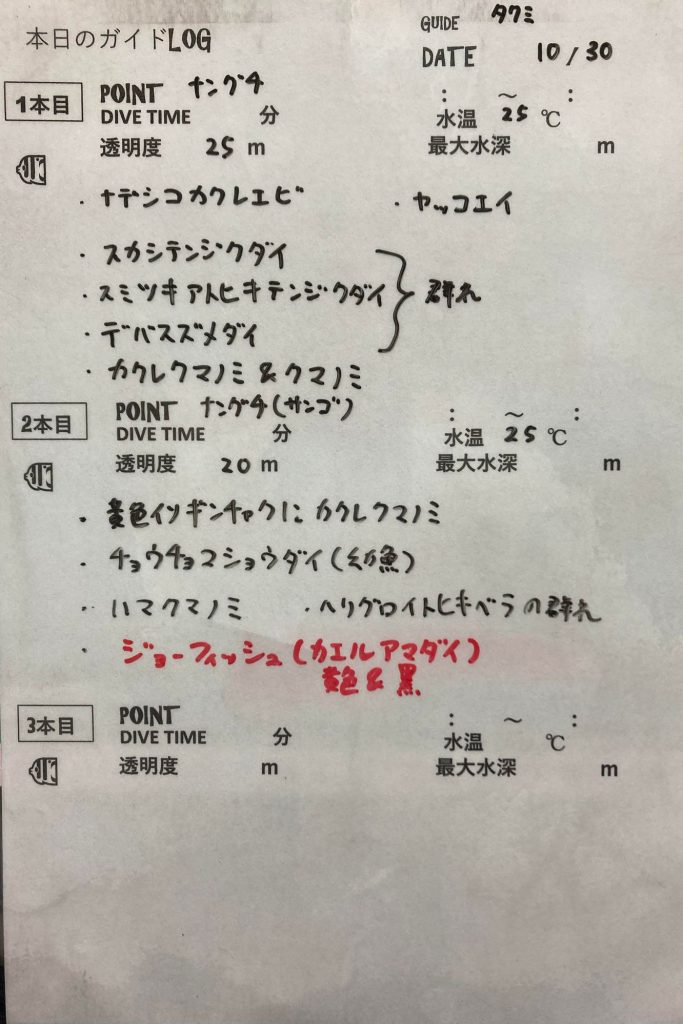 本日のガイドLOG
GUIDE タクミ
DATE 10/30
1本目 POINT ナングチ : ～ :
DIVE TIME 分 水温 25 ℃
透明度 25 m 最大水深 m
・ナデシコカクレエビ ・ヤッコエイ
・スカシテンジクダイ
・スミツキアトヒキテンジクダイ 群れ
・デバスズメダイ
・カクレクマノミ&クマノミ
2本目 POINT ナングチ(サンゴ) : ～ :
DIVE TIME 分 水温 25 ℃
透明度 20 m 最大水深 m
・黄色イソギンチャクに カクレクマノミ
・チョウチョコショウダイ(幼魚)
・ハマクマノミ ・ヘリグロイトヒキベラの群れ
・ジョーフィッシュ(カエルアマダイ)
黄色&黒
3本目 POINT : ～ :
DIVE TIME 分 水温 ℃
透明度 m 最大水深 m